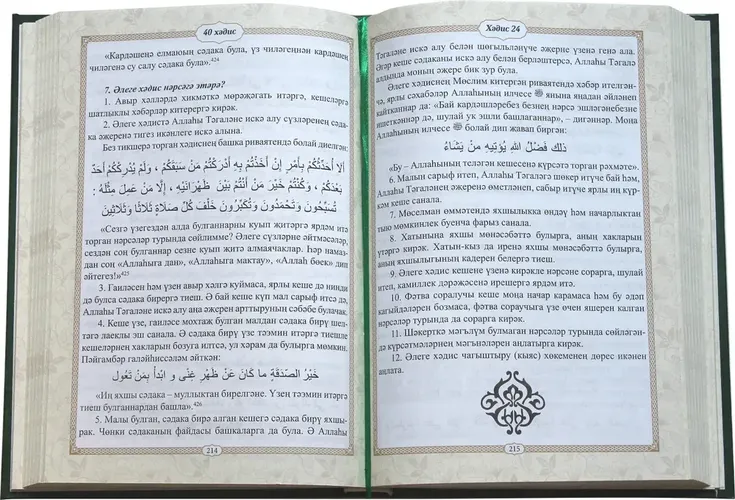 40 хәдис
«Кардәшеңә елмаюың сәдака була, үз чиләгеннән кардәшең
чиләгенә су салу сәдака була».424
7. Әлеге хәдис нәрсәгә этәрә?
1. Авыр хәлләрдә хикмәткә мөрәҗәгать итәргә, кешеләргә
шатлыклы хәбәрләр китерергә кирәк.
2. Әлеге хәдистә Аллаһы Тәгаләне искә алу сүзләренең сәда-
ка әҗеренә тигез икәнлеге искә алына.
Без тикшерә торган хәдиснең башка риваятендә болай диелгән:
أَلَا أُحَدِّثُكُمْ بِأَمْرٍ إِنْ أَخَذْتُمْ بِهِ أَدْرَكْتُمْ مَنْ سَبَقَكُمْ ، وَلَمْ يُدْرِكْكُمْ أَحَدٌ
بَعْدَكُمْ ، وَكُنْتُمْ خَيْرَ مَنْ أَنْتُمْ بَيْنَ ظَهْرَانَيْهِ ، إِلَّا مَنْ عَمِلَ مِثْلَهُ :
تُسَبِّحُونَ وَتَحْمَدُونَ وَتُكَبِّرُونَ خَلْفَ كُلِّ صَلَاةٍ ثَلَاثًا وَثَلَاثِينَ
«Сезгә үзегездән алда булганнарны куып җитәргә ярдәм итә
торган нәрсәләр турында сөйлиммe? Әлеге сүзләрне әйтмәсәләр,
сездән соң булганнар сезне куып җитә алмаячаклар. Һәр намаз-
дан соң «Аллаһыга дан», «Аллаһыга мактау», «Аллаһ бөек» дип
әйтегез!»425
3. Гаиләсен һәм үзен авыр хәлгә куймаса, ярлы кеше дә нинди
дә булса сәдака бирергә тиеш. Ә бай кеше күп мал сарыф итсә дә,
Аллаһы Тәгаләне искә алу аңа әҗерен арттыруның сәбәбе булачак.
4. Кеше үзе, гаиләсе мохтаҗ булган малдан сәдака бирү шел-
тәгә лаеклы эш санала. Ә сәдака бирү үзе тәэмин итәргә тиешле
кешеләрнең хакларын бозуга илтсә, ул хәрам да булырга мөмкин.
Пәйгамбәр галәйһиссәләм әйткән:
خَيْرُ الصَّدَقَةِ مَا كَانَ عَنْ ظَهْرِ غِنًى وَ ابْدَأْ بِمَنْ تَعُولُ
«Иң яхшы сәдака – муллыктан бирелгәне. Үзең тәэмин итәргә
тиеш булганнардан башла».426
5. Малы булган, сәдака бирә алган кешегә сәдака бирү яхшы-
рак. Чөнки сәдаканың файдасы башкаларга да була. Ә Аллаһы
214
Хәдис 24
Тәгаләне искә алу белән шөгыльләнүче әҗерне үзенә генә ала.
Әгәр кеше сәдаканы искә алу белән берләштерсә, Аллаһы Тәгалә
алдында моның әҗере бик зур була.
Әлеге хәдиснең Мөслим китергән риваятендә хәбәр ителгән-
чә, ярлы сәхабәләр Аллаһының илчесе ﷺ янына яңадан әйләнеп
кайтканнар да: «Бай кардәшләребез безнең нәрсә эшләгәнебезне
ишеткәннәр дә, шулай ук эшли башлаганнар», – дигәннәр. Моңа
Аллаһының илчесе ﷺ болай дип җавап биргән:
ذٰلِكَ فَضْلُ اللّٰهِ يُؤْتِيهِ مَنْ يَشَاءُ
«Бу – Аллаһының теләгән кешесенә күрсәтә торган рәхмәте».
6. Малын сарыф итеп, Аллаһы Тәгаләгә шөкер итүче бай һәм,
Аллаһы Тәгаләнең әҗеренә өметләнеп, сабыр итүче ярлы иң күр-
кәм кеше санала.
7. Мөселман өммәтендә яхшылыкка өндәү һәм начарлыктан
тыю мөмкинлек буенча фарыз санала.
8. Хатынына яхшы мөнәсәбәттә булырга, аның хакларын
үтәргә кирәк. Хатын-кыз да иренә яхшы мөнәсәбәттә булырга,
аның яхшылыгының кадерен белергә тиеш.
9. Әлеге хәдис кешене үзенә кирәкле нәрсәне сорарга, шулай
итеп, камиллек дәрәҗәсенә ирешергә ярдәм итә.
10. Фәтва соралучы кеше моңа начар карамаса һәм бу әдәп
кагыйдәләрен бозмаса, фәтва сораучыга үзе өчен яшерен калган
нәрсәләр турында да сорарга кирәк.
11. Шәкерткә мәгълүм булмаган нәрсәләр турында сөйләгән-
дә күрсәтмәләрнең мәгънәләрен аңлатырга кирәк.
12. Әлеге хәдис чагыштыру (кыяс) хөкеменең дөрес икәнен
аңлата.
215